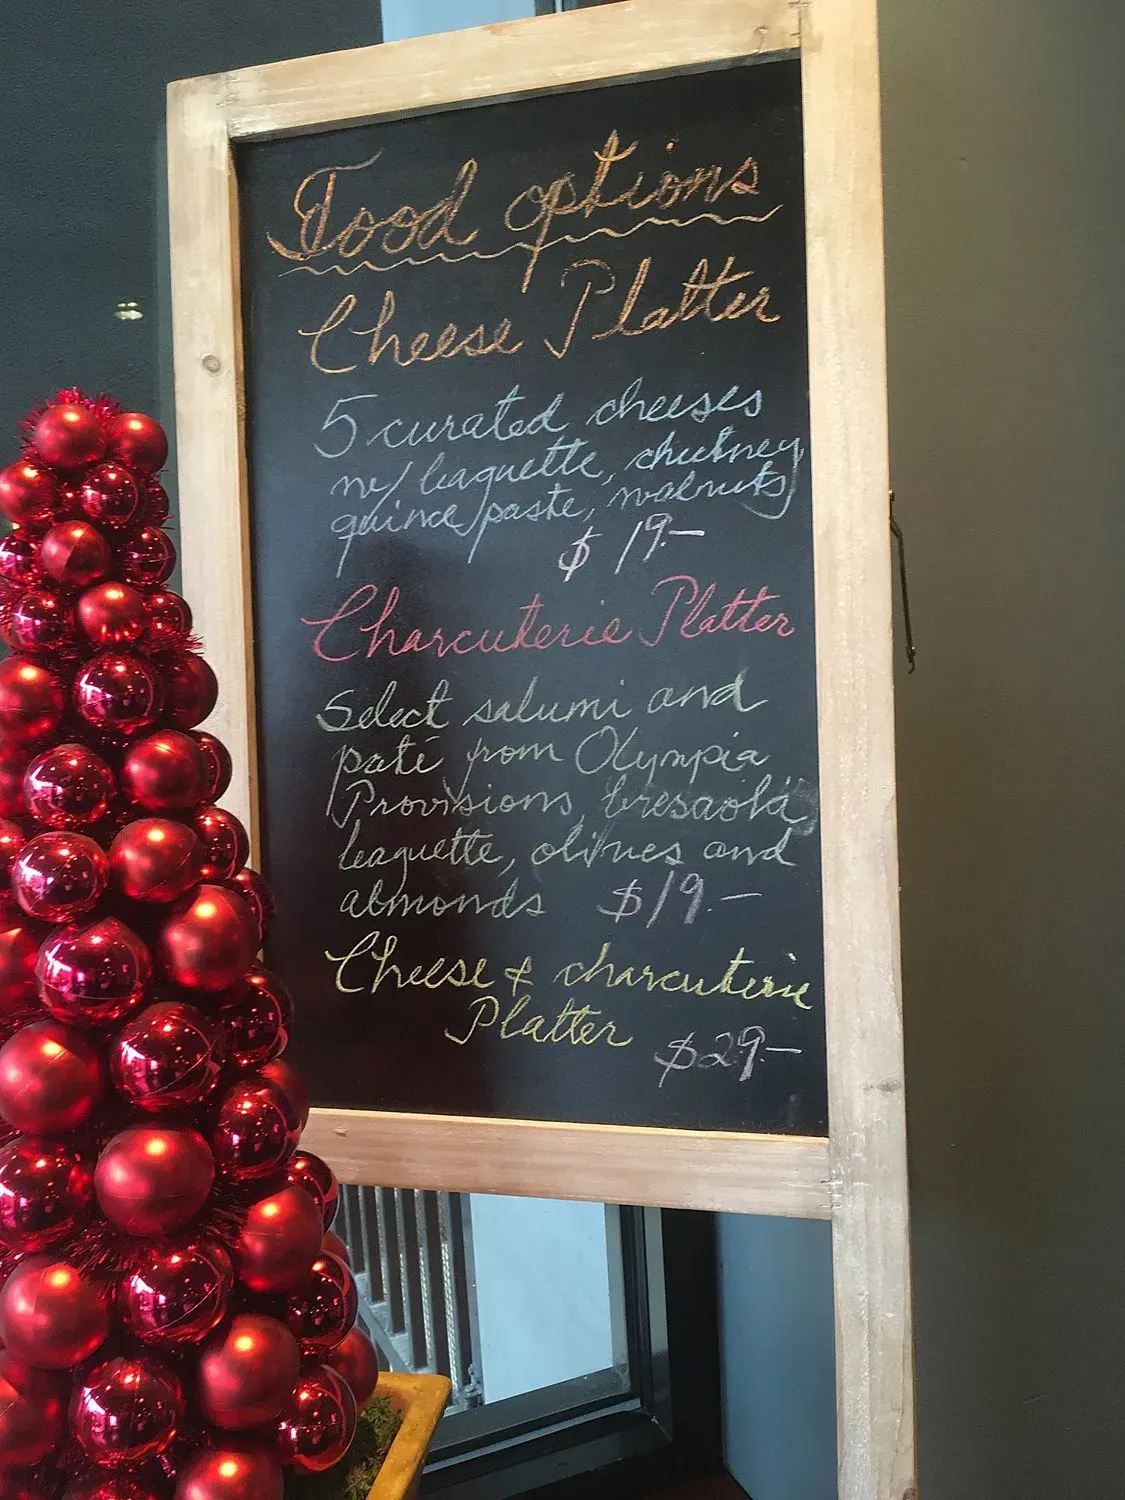 Food options
Cheese Platter
5 curated cheeses
w/ baguette, chutney
quince paste, walnuts
$19.-
Charcuterie Platter
Select salumi and
paté from Olympia
Provisions, bresaola,
baguette, olives and
almonds $19.-
Cheese & charcuterie
Platter
$29.-